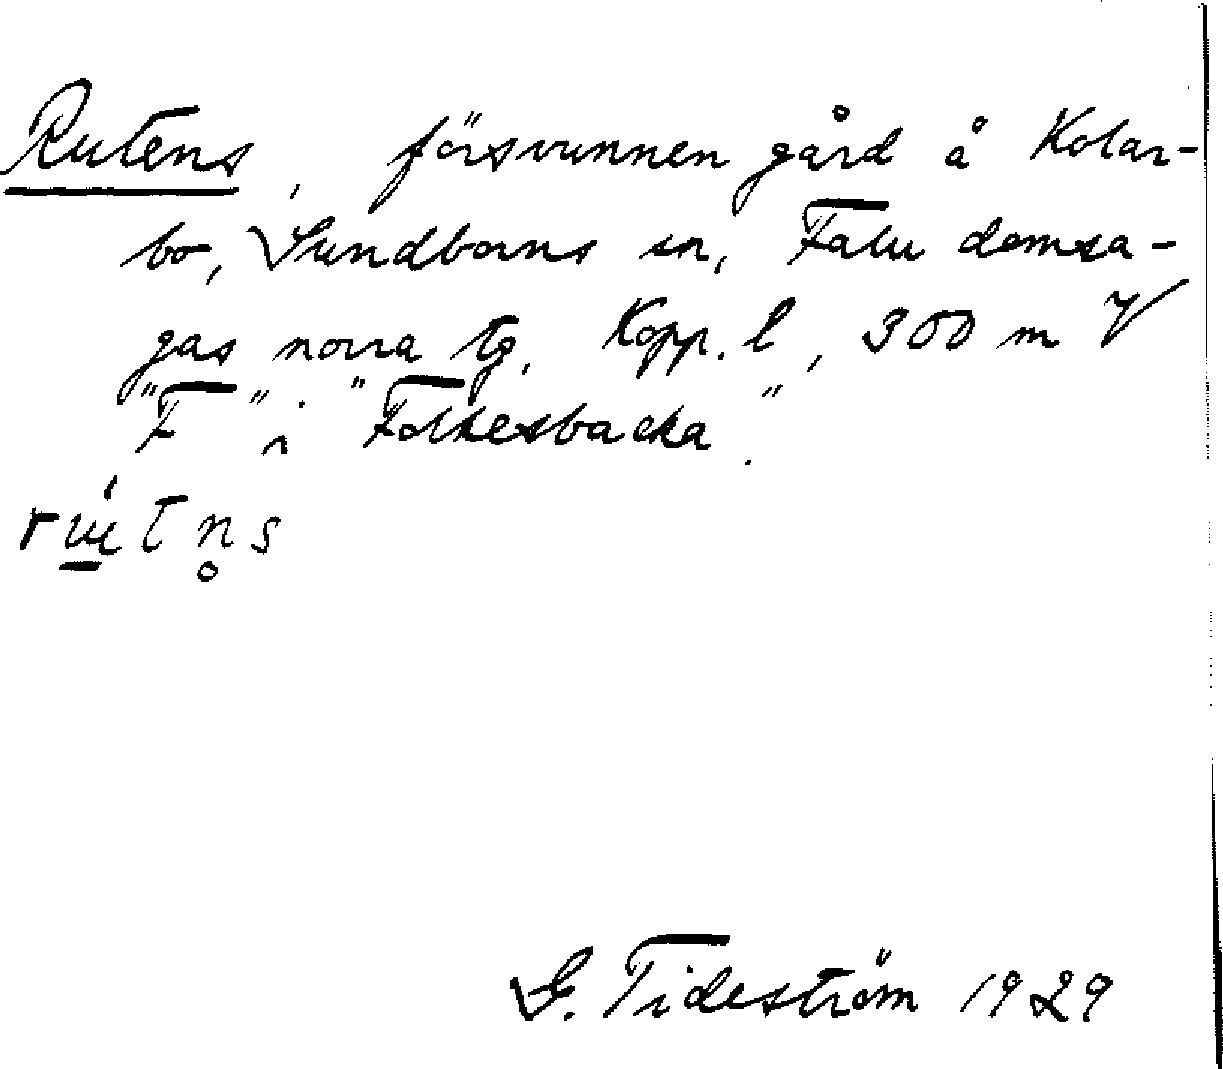 Rutens, försvunnen gård å Kolar-
bo, Sundborns sn, Falu domsa-
gas norra tg, Kopp. l, 300 m V
"F" i "Folkesbacka".
rútn̥s
G. Tideström 1929